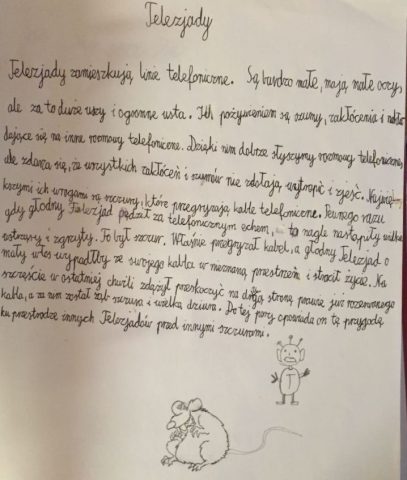 Telezjady
Telezjady zamieszkują linie telefoniczne. Są bardzo małe, mają małe oczy,
ale za to duże uszy i ogromne usta. Ich pożywieniem są szumy, zakłócenia i nakła-
dające się na inne rozmowy telefoniczne. Dzięki nim dobrze słyszymy rozmowy telefoniczne,
ale zdarza się, że wszystkich zakłóceń i szumów nie zdołają wytropić i zjeść. Najwię-
kszymi ich wrogami są szczury, które przegryzają kable telefoniczne. Pewnego razu
gdy głodny Telezjad pędził za telefonicznym echem, to nagle nastąpiły wielkie
wstrząsy i zgrzyty. To był szczur. Właśnie przegryzał kabel, a głodny Telezjad o
mały włos wypadłby ze swojego kabla w nieznaną przestrzeń i stracił życie. Na
szczęście w ostatniej chwili zdążył przeskoczyć na drugą stronę prawie już rozerwanego
kabla, a za nim został ząb szczura i wielka dziura. Do tej pory opowiada on tę przygodę
ku przestrodze innych Telezjadów przed innymi szczurami.
T